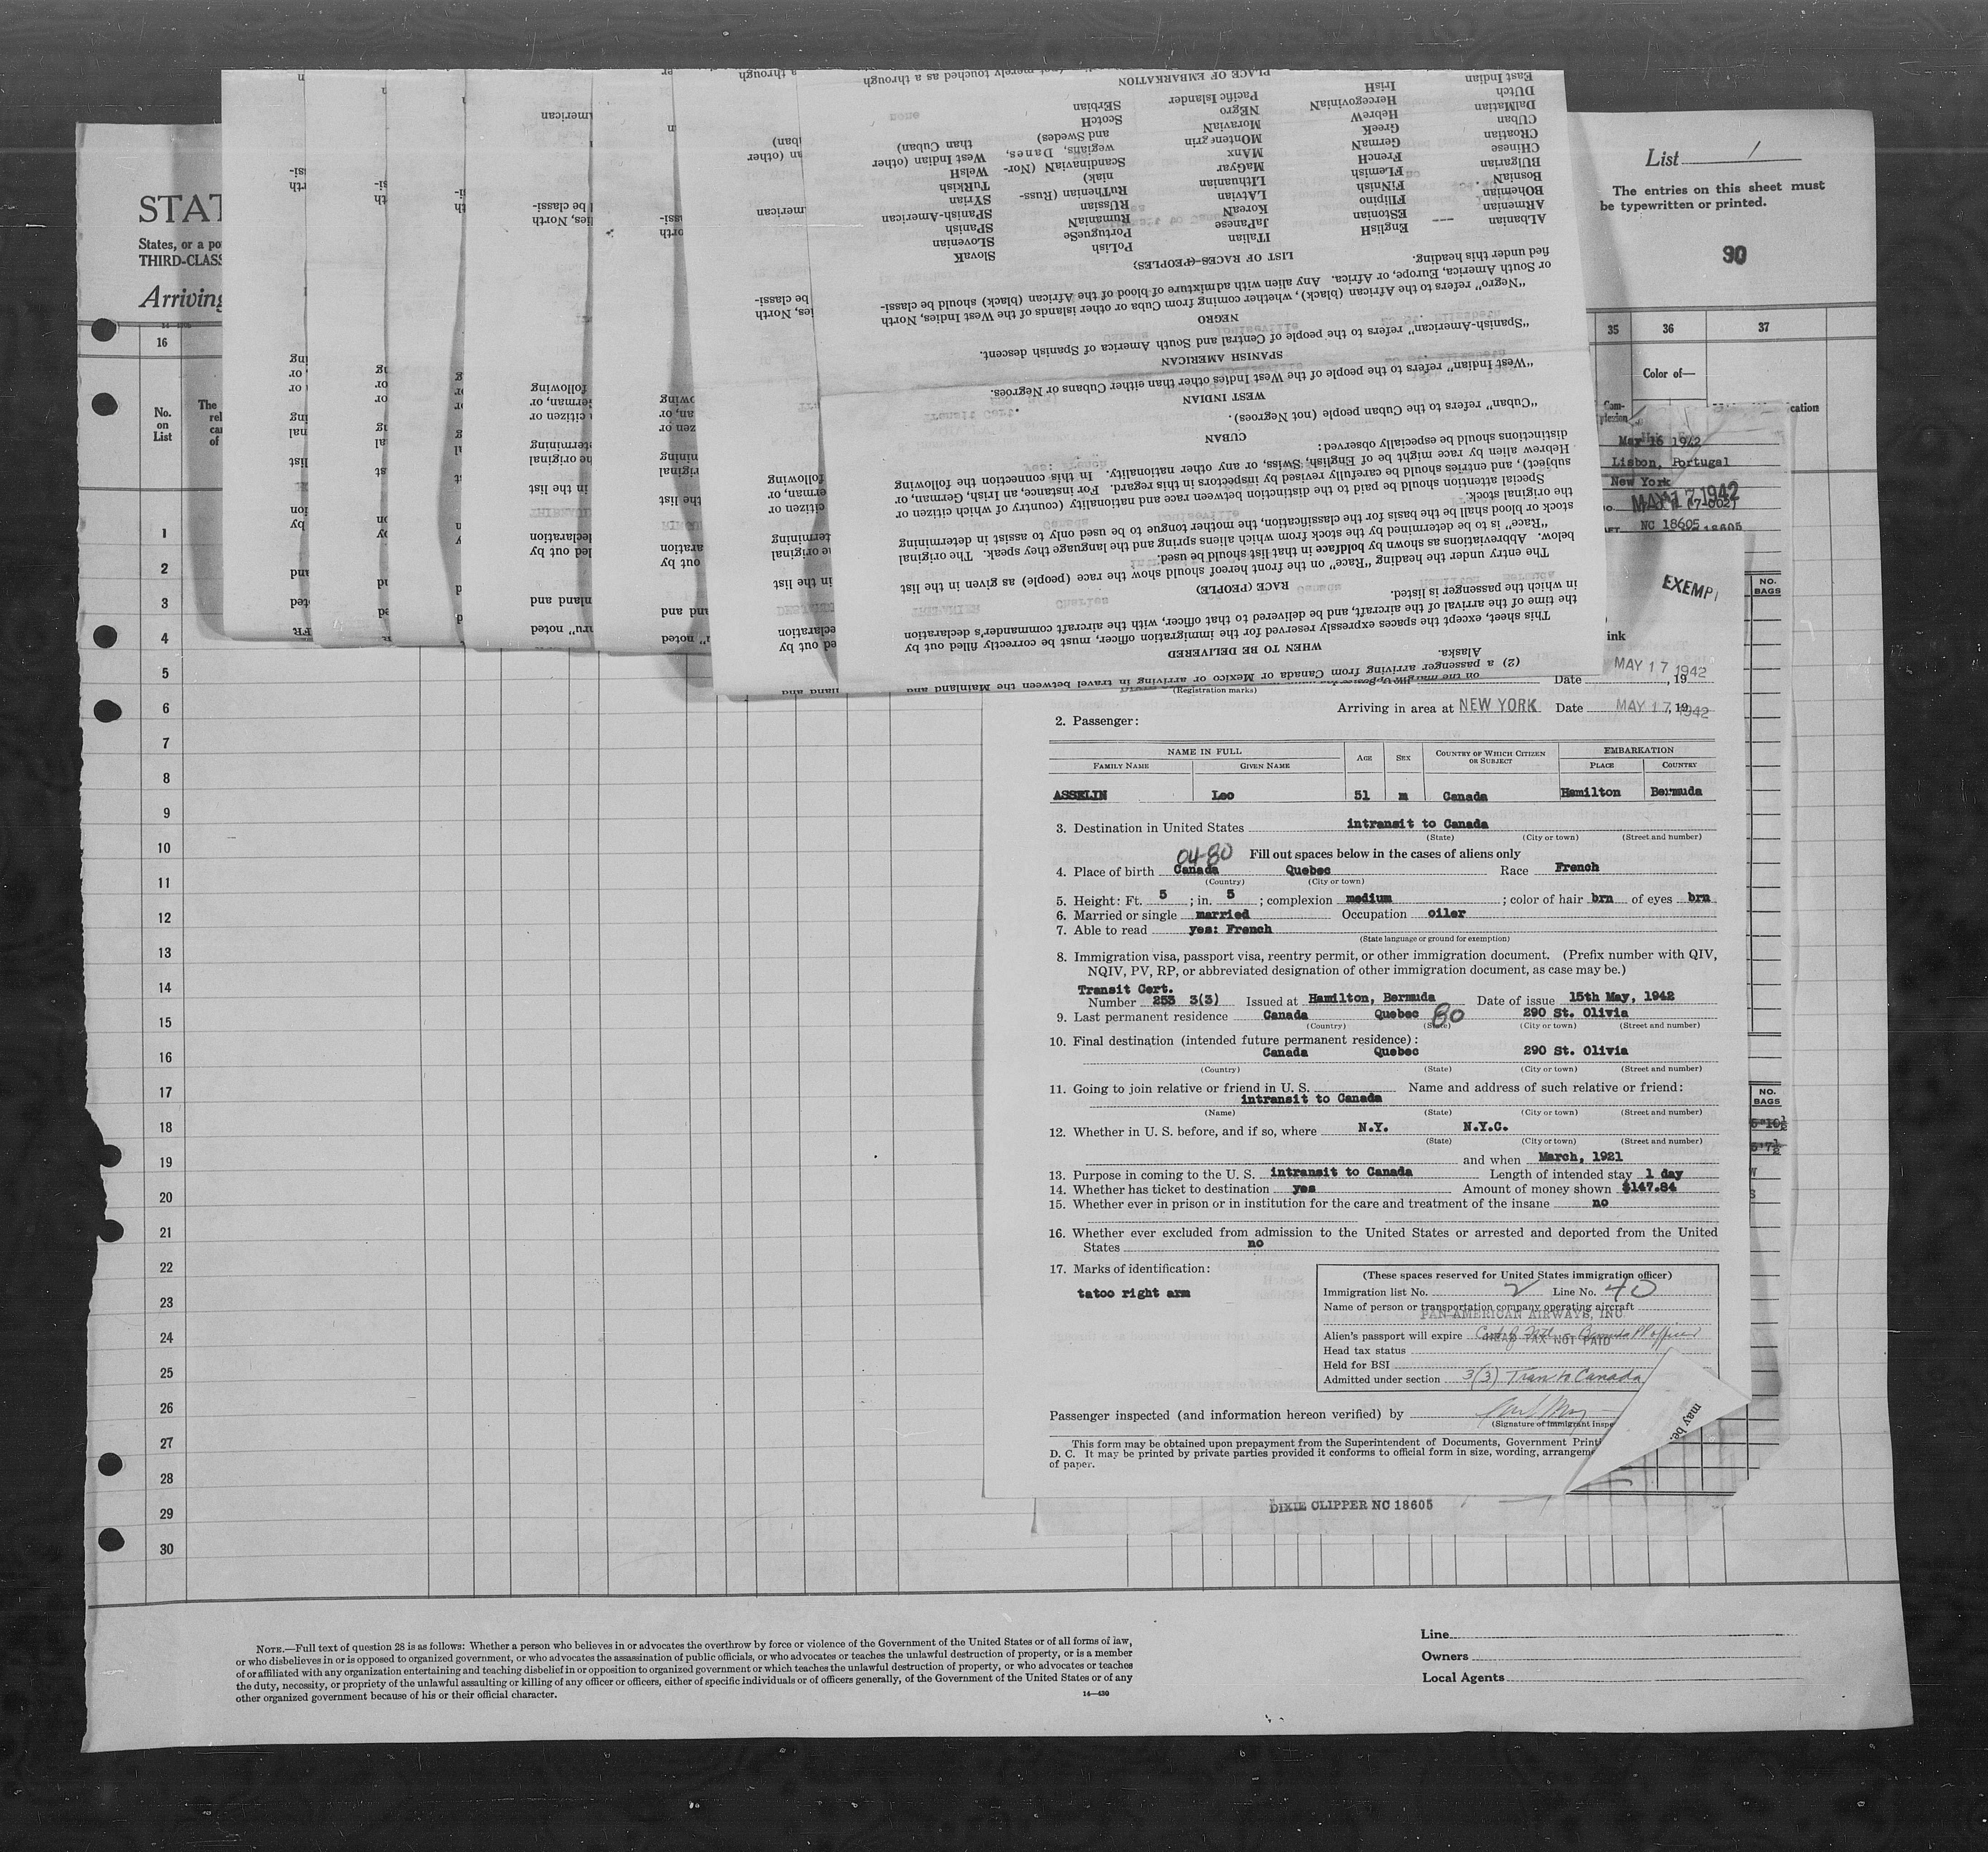 List 1
The entries on this sheet must
be typewritten or printed.
90
STAT
States, or a po
THIRD-CLASS
Arriving
16
No.
on
List
35
36
37
Color of—
Mar 16 1942
Lisbon, Portugal
New York
MAY 17 1942
NC 18605
EXEMP
ink
NO.
BAGS
(2) a passenger arriving from Canada or Mexico or arriving in travel between the Mainland and
Alaska.
WHEN TO BE DELIVERED
This sheet, except the spaces expressly reserved for the immigration officer, must be correctly filled out by
the time of the arrival of the aircraft, and be delivered to that officer, with the aircraft commander's declaration
in which the passenger is listed.
RACE (PEOPLE)
The entry under the heading "Race" on the front hereof should show the race (people) as given in the list
below. Abbreviations as shown by boldface in that list should be used.
"Race" is to be determined by the stock from which aliens spring and the language they speak. The original
stock or blood shall be the basis for the classification, the mother tongue to be used only to assist in determining
the original stock.
Special attention should be paid to the distinction between race and nationality (country of which citizen or
subject), and entries should be carefully revised by inspectors in this regard. For instance, an Irish, German, or
Hebrew alien by race might be of English, Swiss, or any other nationality. In this connection the following
distinctions should be especially observed:
CUBAN
"Cuban" refers to the Cuban people (not Negroes).
WEST INDIAN
"West Indian" refers to the people of the West Indies other than either Cubans or Negroes.
SPANISH AMERICAN
"Spanish-American" refers to the people of Central and South America of Spanish descent.
NEGRO
"Negro" refers to the African (black), whether coming from Cuba or other islands of the West Indies, North
or South America, Europe, or Africa. Any alien with admixture of blood of the African (black) should be classi-
fied under this heading.
LIST OF RACES (PEOPLES)
ALbanian EnglisH ITalian PoLish SlovaK
ARmenian EStonian JaPanese PortugueSe SLovenian
BOhemian FIlipino KoreaN RumaniaN SPanish
BosniaN FiNish LAtvian RUssian SPanisH-American
BUlgarian FLemish LIthuanian RuThenian (Russ- SYrian
CHinese FrencH MaGyar niak) TuRkish
CRoatian GermaN MAnx ScandinaviaN (Nor- WelsH
CUban GreeK MOntenegrin wegians, Danes, West Indian (other
DalMatian HebreW MoraviaN and Swedes) than Cuban)
DUtch HercegoviniaN NEgro ScotcH
East Indian IrisH Pacific Islander SErbian
PLACE OF EMBARKATION
(Registration marks)
Date MAY 17 1942, 19
Arriving in area at NEW YORK Date MAY 17, 1942
2. Passenger:
NAME IN FULL
FAMILY NAME GIVEN NAME AGE SEX COUNTRY OF WHICH CITIZEN OR SUBJECT EMBARKATION PLACE COUNTRY
ASSELIN Leo 51 m Canada Hamilton Bermuda
3. Destination in United States intransit to Canada
(State) (City or town) (Street and number)
04-80 Fill out spaces below in the cases of aliens only
4. Place of birth Canada Quebec Race French
(Country) (City or town)
5. Height: Ft. 5 ; in. 5 ; complexion medium ; color of hair brn of eyes brn
6. Married or single married Occupation oiler
7. Able to read yes: French
(State language or ground for exemption)
8. Immigration visa, passport visa, reentry permit, or other immigration document. (Prefix number with QIV,
NQIV, PV, RP, or abbreviated designation of other immigration document, as case may be.)
Transit Cert.
Number 253 3(3) Issued at Hamilton, Bermuda Date of issue 15th May, 1942
9. Last permanent residence Canada Quebec 80 290 St. Olivia
(Country) (State) (City or town) (Street and number)
10. Final destination (intended future permanent residence):
Canada Quebec 290 St. Olivia
(Country) (State) (City or town) (Street and number)
11. Going to join relative or friend in U. S. Name and address of such relative or friend:
intransit to Canada
(Name) (State) (City or town) (Street and number)
12. Whether in U. S. before, and if so, where N.Y. N.Y.C.
(State) (City or town) (Street and number)
and when March, 1921
13. Purpose in coming to the U. S. intransit to Canada Length of intended stay 1 day
14. Whether has ticket to destination yes Amount of money shown $147.84
15. Whether ever in prison or in institution for the care and treatment of the insane no
16. Whether ever excluded from admission to the United States or arrested and deported from the United
States no
17. Marks of identification:
tatoo right arm
(These spaces reserved for United States immigration officer)
Immigration list No. 2 Line No. 40
Name of person or transportation company operating aircraft
PAN-AMERICAN AIRWAYS, INC
Alien's passport will expire
HEAD TAX NOT PAID
Head tax status
Held for BSI
Admitted under section 3(3) Trans to Canada
Passenger inspected (and information hereon verified) by
(Signature of immigrant inspe
This form may be obtained upon prepayment from the Superintendent of Documents, Government Printi
D. C. It may be printed by private parties provided it conforms to official form in size, wording, arrangeme
of paper.
may be.
DIXIE CLIPPER NC 18605
1
2
3
4
5
6
7
8
9
10
11
12
13
14
15
16
17
18
19
20
21
22
23
24
25
26
27
28
29
30
NOTE.—Full text of question 28 is as follows: Whether a person who believes in or advocates the overthrow by force or violence of the Government of the United States or of all forms of law,
or who disbelieves in or is opposed to organized government, or who advocates the assassination of public officials, or who advocates or teaches the unlawful destruction of property, or is a member
of or affiliated with any organization entertaining and teaching disbelief in or opposition to organized government or which teaches the unlawful destruction of property, or who advocates or teaches
the duty, necessity, or propriety of the unlawful assaulting or killing of any officer or officers, either of specific individuals or of officers generally, of the Government of the United States or of any
other organized government because of his or their official character.
14—430
Line
Owners
Local Agents